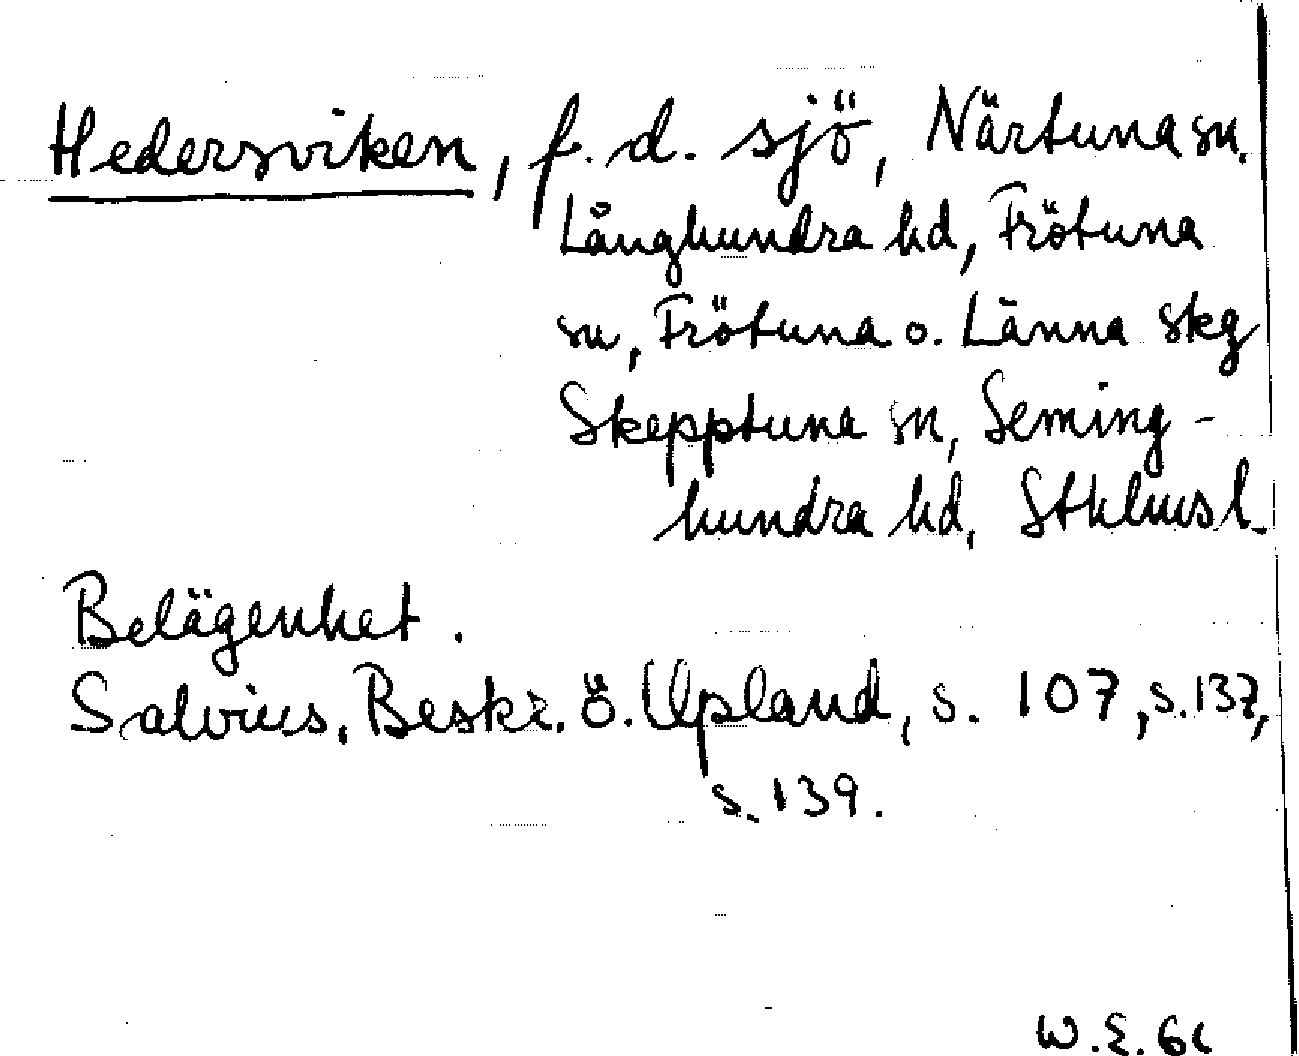 Hedersviken, f. d. sjö, Närtuna sn.
Långhundra hd, Frötuna
sn, Frötuna o. Länna skg
Skepptuna sn, Seming-
hundra hd, Sthlms l.
Belägenhet.
Salvius. Beskr. ö. Upland, s. 107, s. 137,
s. 139.
W.E.